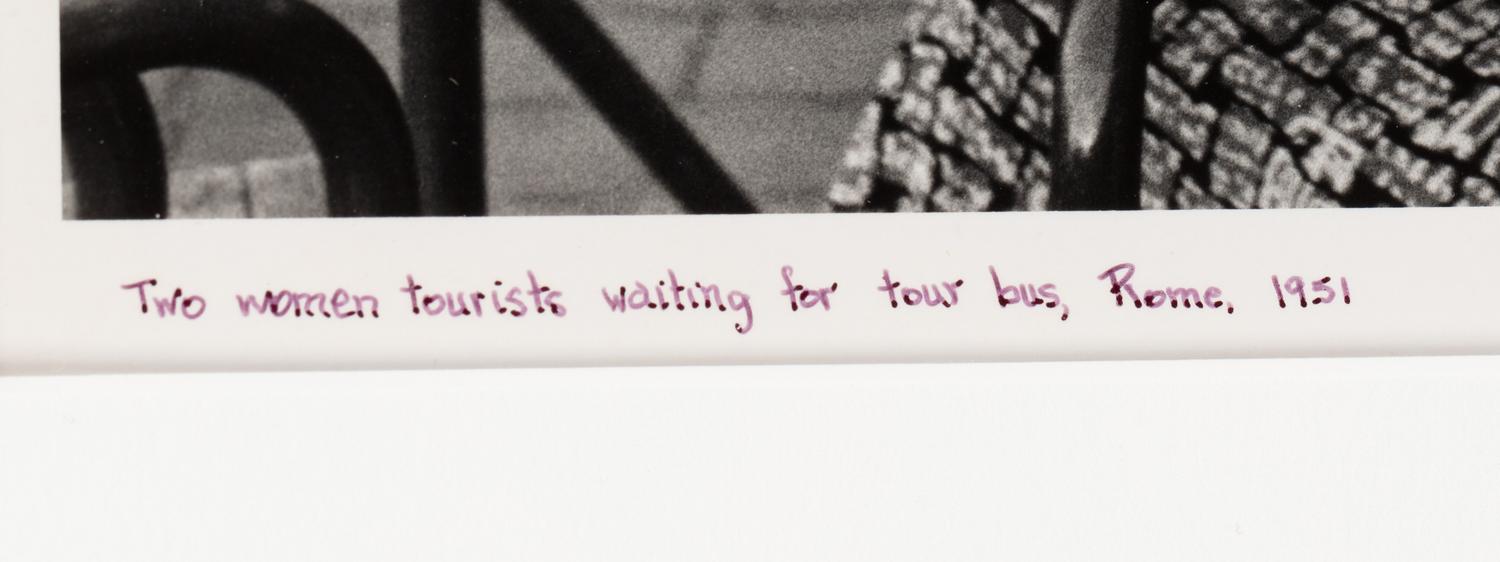 Two women tourists waiting for tour bus, Rome, 1951